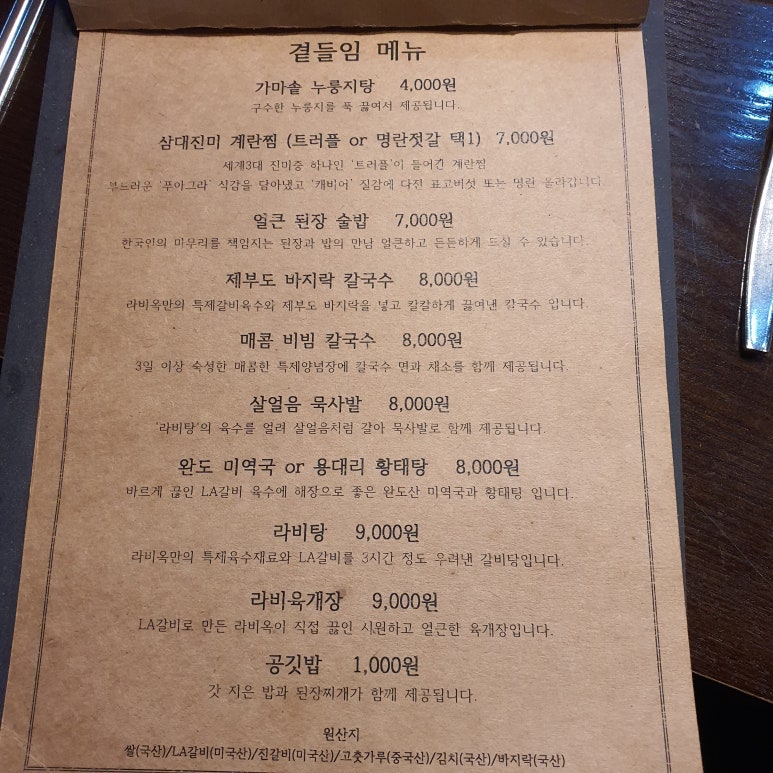 곁들임 메뉴
가마솥 누룽지탕 4,000원
구수한 누룽지를 푹 끓여서 제공됩니다.
삼대진미 계란찜 (트러플 or 명란젓갈 택1) 7,000원
세계3대 진미중 하나인 '트러플'이 들어간 계란찜
부드러운 '푸아그라' 식감을 담아냈고 '캐비어' 질감에 다진 표고버섯 또는 명란 올라갑니다
얼큰 된장 술밥 7,000원
한국인의 마무리를 책임지는 된장과 밥의 만남 얼큰하고 든든하게 드실 수 있습니다.
제부도 바지락 칼국수 8,000원
라비옥만의 특제갈비육수와 제부도 바지락을 넣고 칼칼하게 끓여낸 칼국수 입니다.
매콤 비빔 칼국수 8,000원
3일 이상 숙성한 매콤한 특제양념장에 칼국수 면과 채소를 함께 제공됩니다.
살얼음 묵사발 8,000원
'라비탕'의 육수를 얼려 살얼음처럼 갈아 묵사발로 함께 제공됩니다.
완도 미역국 or 용대리 황태탕 8,000원
바르게 끓인 LA갈비 육수에 해장으로 좋은 완도산 미역국과 황태탕 입니다.
라비탕 9,000원
라비옥만의 특제육수재료와 LA갈비를 3시간 정도 우려낸 갈비탕입니다.
라비육개장 9,000원
LA갈비로 만든 라비옥이 직접 끓인 시원하고 얼큰한 육개장입니다.
공깃밥 1,000원
갓 지은 밥과 된장찌개가 함께 제공됩니다.
원산지
쌀(국산)/LA갈비(미국산)/진갈비(미국산)/고춧가루(중국산)/김치(국산)/바지락(국산)